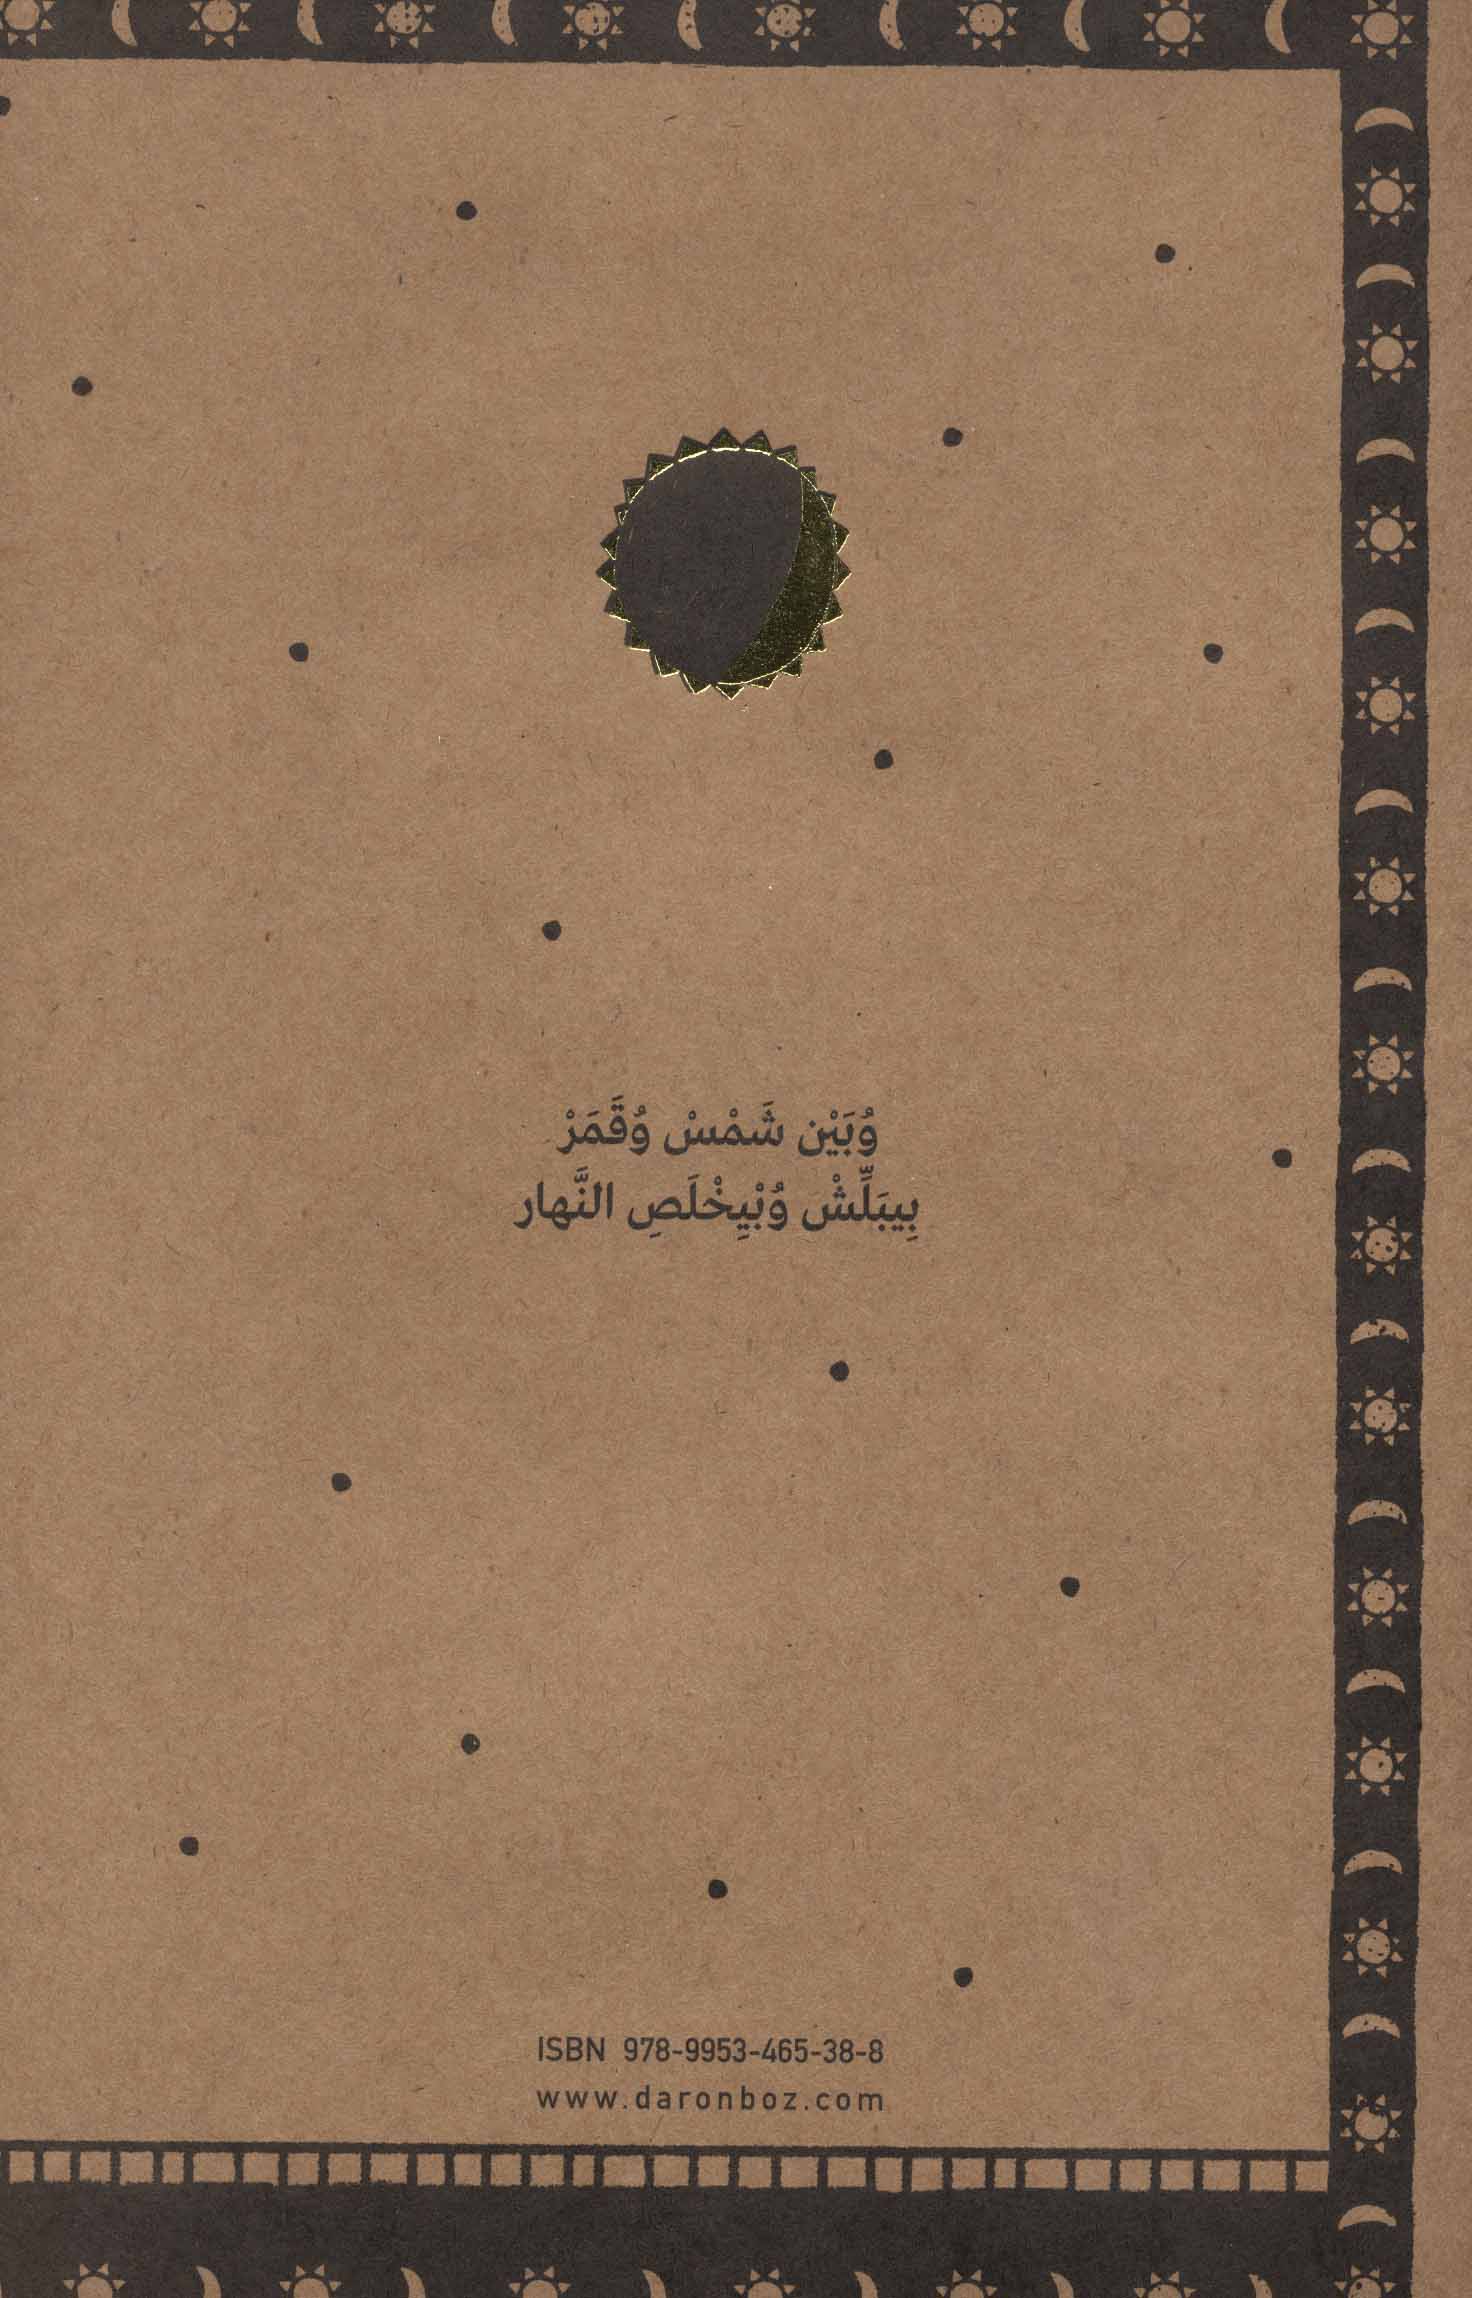 وُبَيْن شَمْسْ وُقَمَرْ
بِيبَلِّشْ وُبْيِخْلَصِ النَّهار
ISBN 978-9953-465-38-8
www.daronboz.com